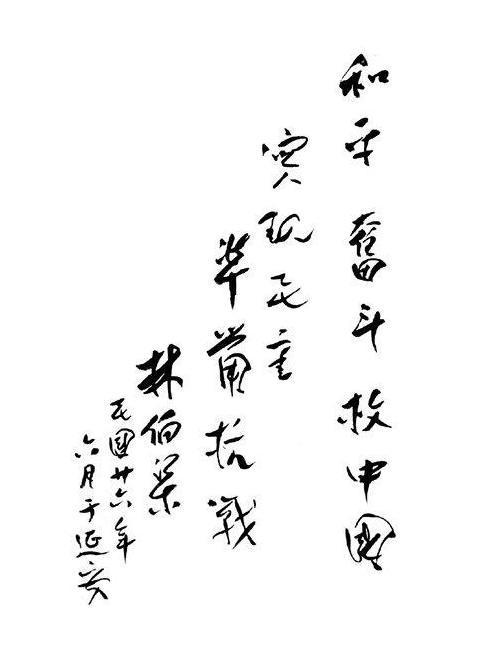 和平奮斗救中國
实现民主
準備抗戰
林伯渠
民國廿六年
六月于延安